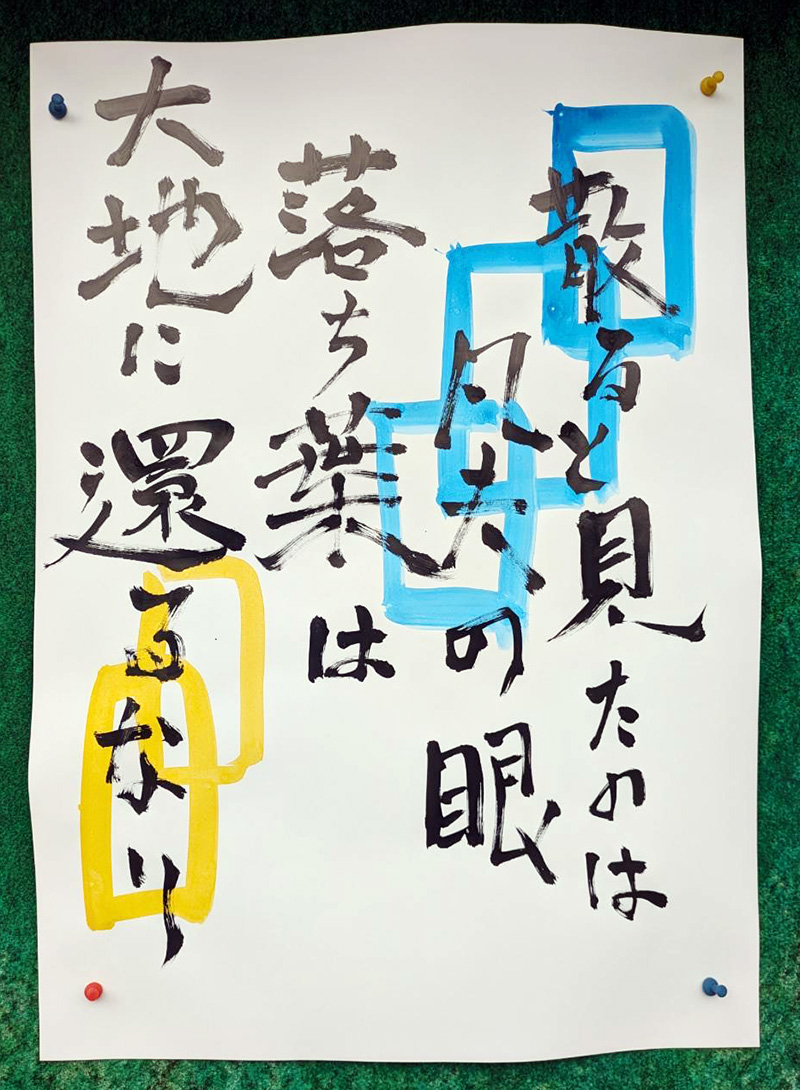 散ると見たのは
凡夫の眼
落ち葉は
大地に還るなり